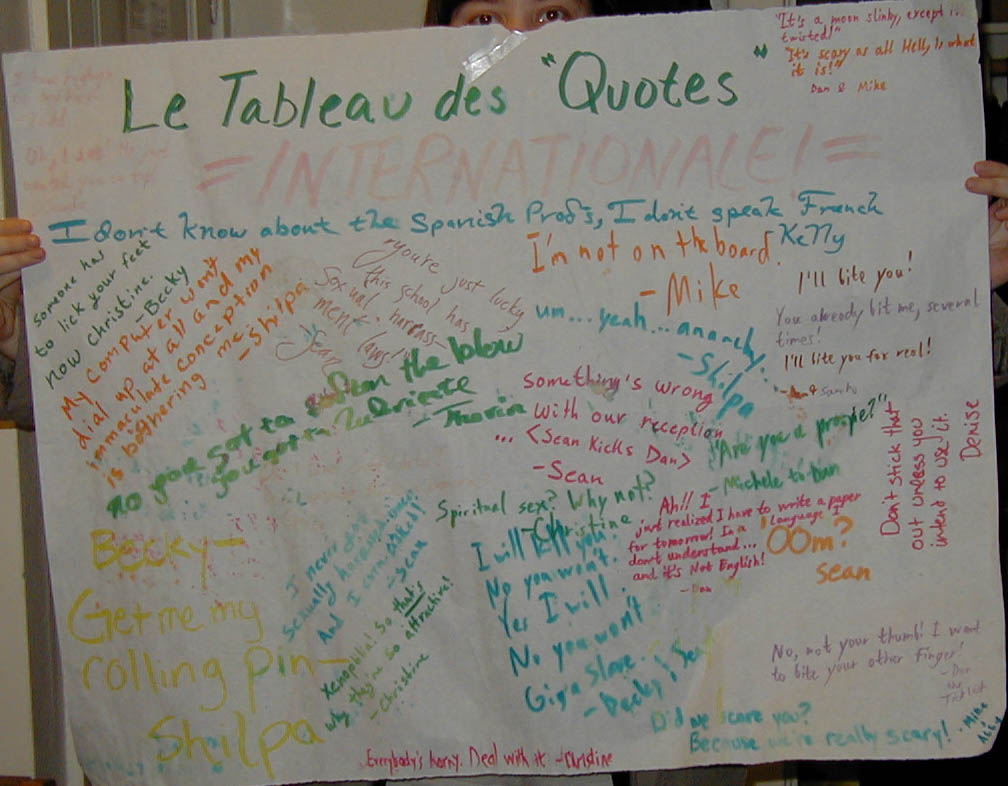 "It's a moon slinky, except i...
twisted!"
"It's scary as all Hell, is what
it is!"
Dan & Mike
Le Tableau des "Quotes"
=INTERNATIONALE!=
I don't know about the Spanish Profs, I don't speak French
-Kelly
someone has
to lick your feet
now Christine.
-Becky
My computer won't
dial up at all and my
immaculate conception
is bothering
me -Shilpa
"you're just lucky
this school has
sexual harrass-
ment laws!"
Sean
I'm not on the board.
-Mike
um...yeah...anarchy..
-Shilpa
I'll bite you!
You already bit me, several
times!
I'll bite you for real!
no you got to soften the blow
you gotta lubricate
something's wrong
with our reception
... <Sean Kicks Dan>
-Sean
"Are you a prospie?"
-Michele to Dan
Don't stick that
out unless you
intend to use it.
Denise
Spiritual sex? Why not?
-Christine
Ah!! I
just realized I have to write a paper
for tomorrow! In a language I
don't understand...
and it's Not English!
-Dan
OOm?
sean
Becky-
Get me my
rolling pin-
Shilpa
I never get
sexually harassed
And I even asked!
-Sean
Xenophilia! So that's
why they're so attractive!
-Christine
I will kill you!
No you won't.
Yes I will.
No you won't
Giga Slave.
No, not your thumb! I want
to bite your other finger!
Did we scare you?
Because we're really scary!
-Mike
Everybody's horny. Deal with it -Christine